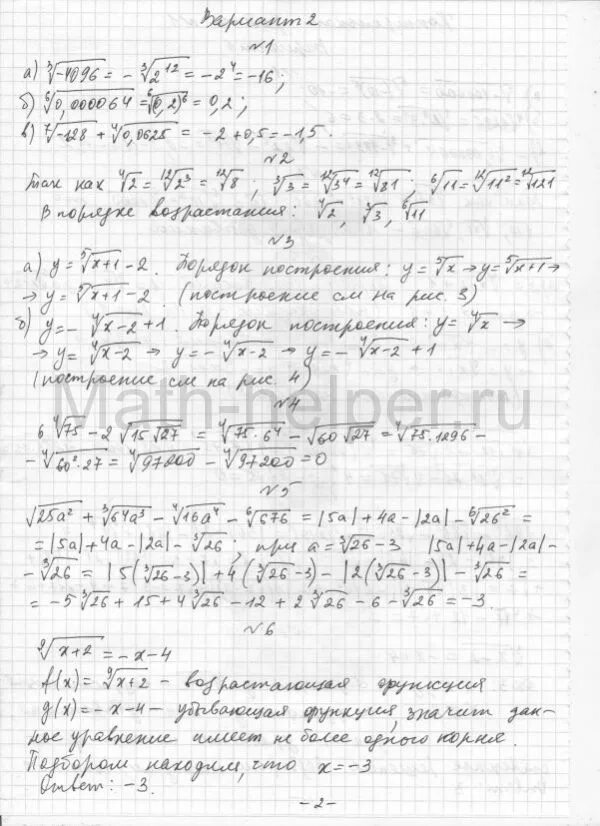 Вариант 2
№1
а) ∛-4096 = - ∛2¹² = -2⁴ = -16;
б) ⁶√0,000064 = ⁶√(0,2)⁶ = 0,2;
в) ⁷√-128 + ⁴√0,0625 = -2 + 0,5 = -1,5.
№2
Так как ⁴√2 = ¹²√2³ = ¹²√8; ∛3 = ¹²√3⁴ = ¹²√81; ⁶√11 = ¹²√11² = ¹²√121
В порядке возрастания: ⁴√2, ∛3, ⁶√11
№3
а) y = ⁵√x+1 - 2. Порядок построения: y = ⁵√x → y = ⁵√x+1 →
→ y = ⁵√x+1 - 2. (построение см на рис. 3)
б) y = - ⁴√x-2 + 1. Порядок построения: y = ⁴√x →
→ y = ⁴√x-2 → y = - ⁴√x-2 → y = - ⁴√x-2 + 1
(построение см на рис. 4)
Math-helper.ru
№4
6 ⁴√75 - 2 √15√27 = ⁴√75·6⁴ - √60√27 = ⁴√75·1296 -
- ⁴√60²·27 = ⁴√97200 - ⁴√97200 = 0
№5
√25a² + ∛64a³ - ⁴√16a⁴ - ⁶√676 = |5a| + 4a - |2a| - ⁶√26² =
= |5a| + 4a - |2a| - ∛26; при a = ∛26 - 3 |5a| + 4a - |2a| -
- ∛26 = |5(∛26 - 3)| + 4(∛26 - 3) - |2(∛26 - 3)| - ∛26 =
= -5∛26 + 15 + 4∛26 - 12 + 2∛26 - 6 - ∛26 = -3.
№6
⁹√x+2 = -x-4
f(x) = ⁹√x+2 - возрастающая функция
g(x) = -x-4 - убывающая функция, значит дан-
ное уравнение имеет не более одного корня.
Подбором находим, что x = -3
Ответ: -3.
- 2 -